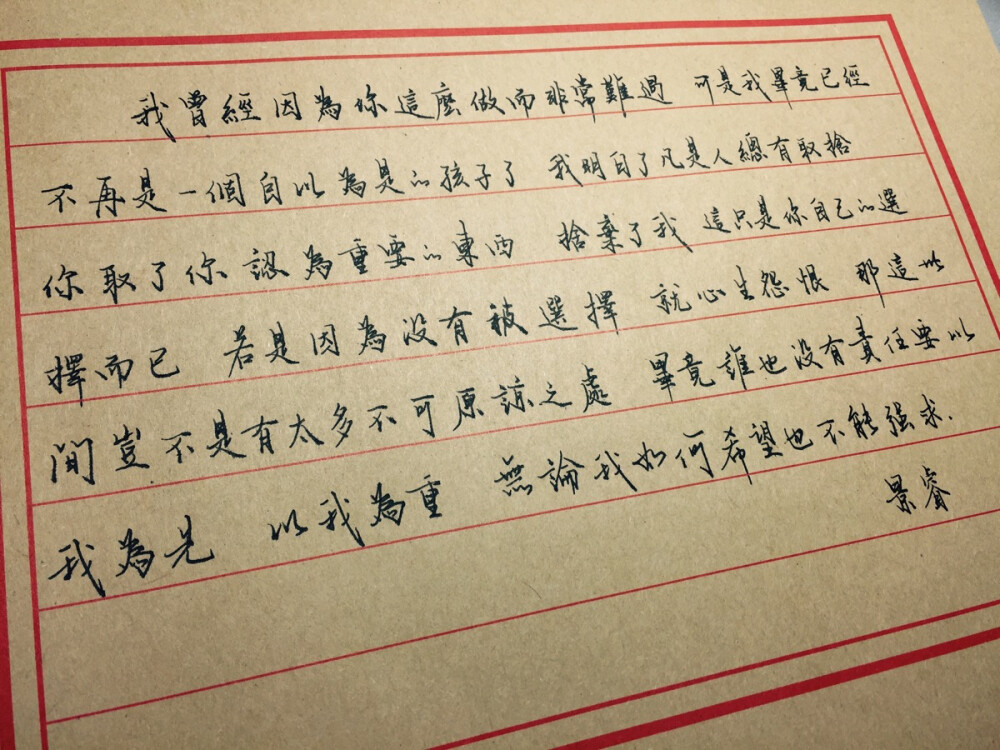 我曾經因為你這麼做而非常難過 可是我畢竟已經
不再是一個自以為是的孩子了 我明白了凡是人總有取捨
你取了你認為重要的東西 捨棄了我 這只是你自己的選
擇而已 若是因為没有被選擇 就心生怨恨 那這世
間豈不是有太多不可原諒之處 畢竟誰也没有責任要以
我為先 以我為重 無論我如何希望也不能强求.
景睿